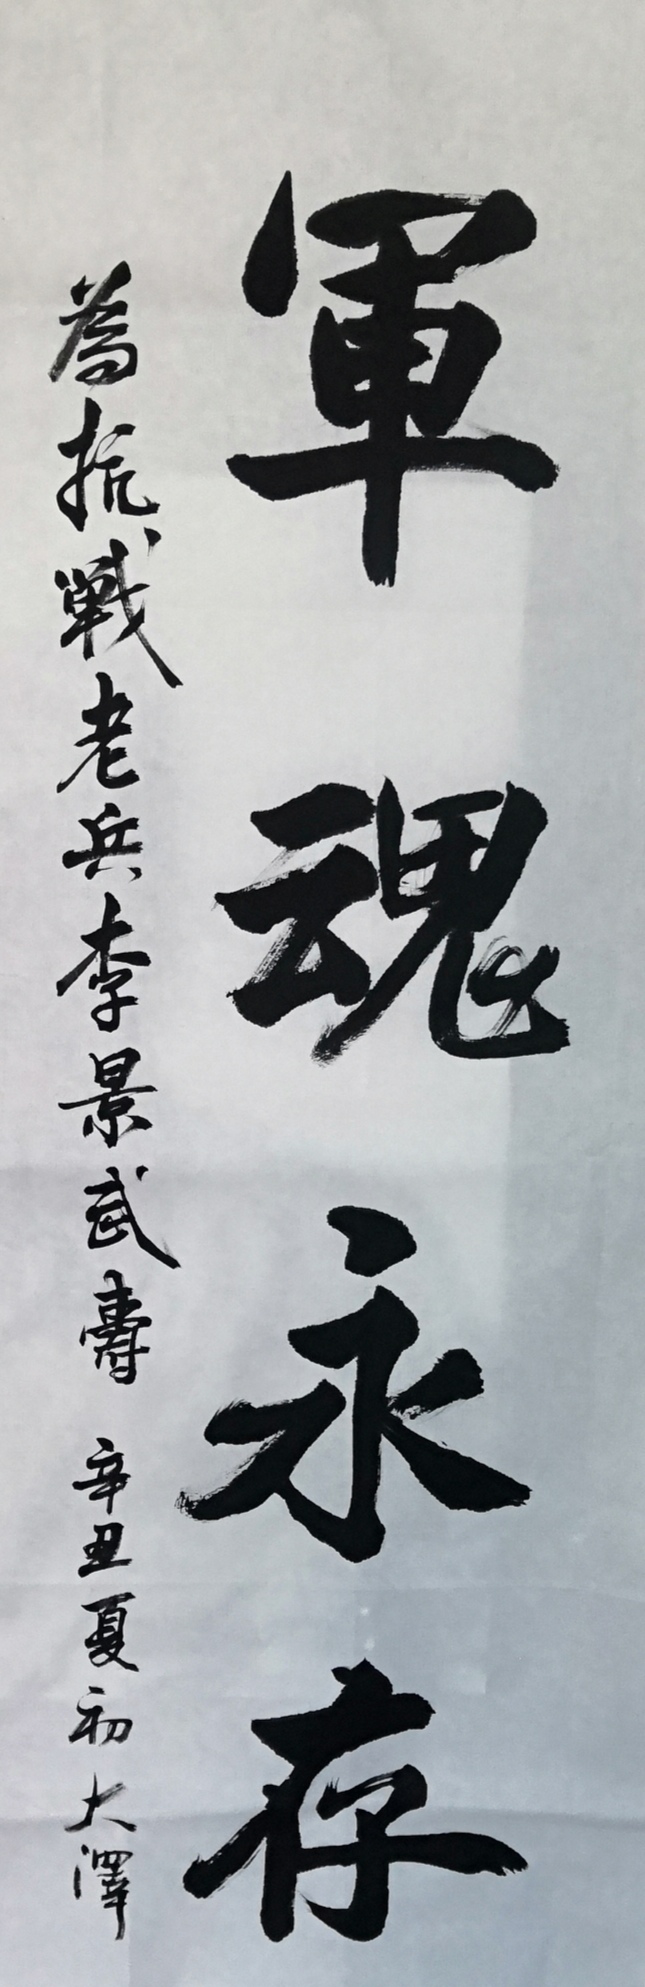 軍魂永存
為抗戰老兵李景武壽 辛丑夏初大澤